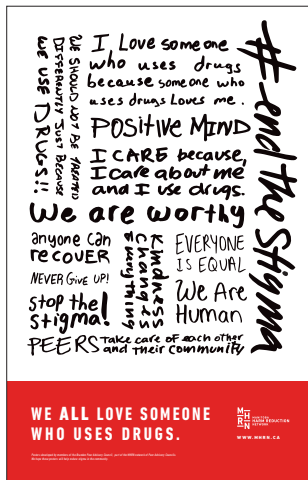 WE SHOULD NOT BE TREATED
DIFFERENTLY JUST BECAUSE
WE USE DRUGS!!
I Love someone
who uses drugs
because someone who
uses drugs Loves me.
POSITIVE MIND
I CARE because,
I care about me
and I use drugs.
#end the Stigma
We are worthy
anyone can
recover
NEVER GIVE UP!
Stop the
Stigma!
Kindness
Changes
Everything
EVERYONE
IS EQUAL
We Are
Human
PEERS Take care of each other
and their community
WE ALL LOVE SOMEONE
WHO USES DRUGS.
MHRN
MANITOBA
HARM REDUCTION
NETWORK
WWW.MHRN.CA